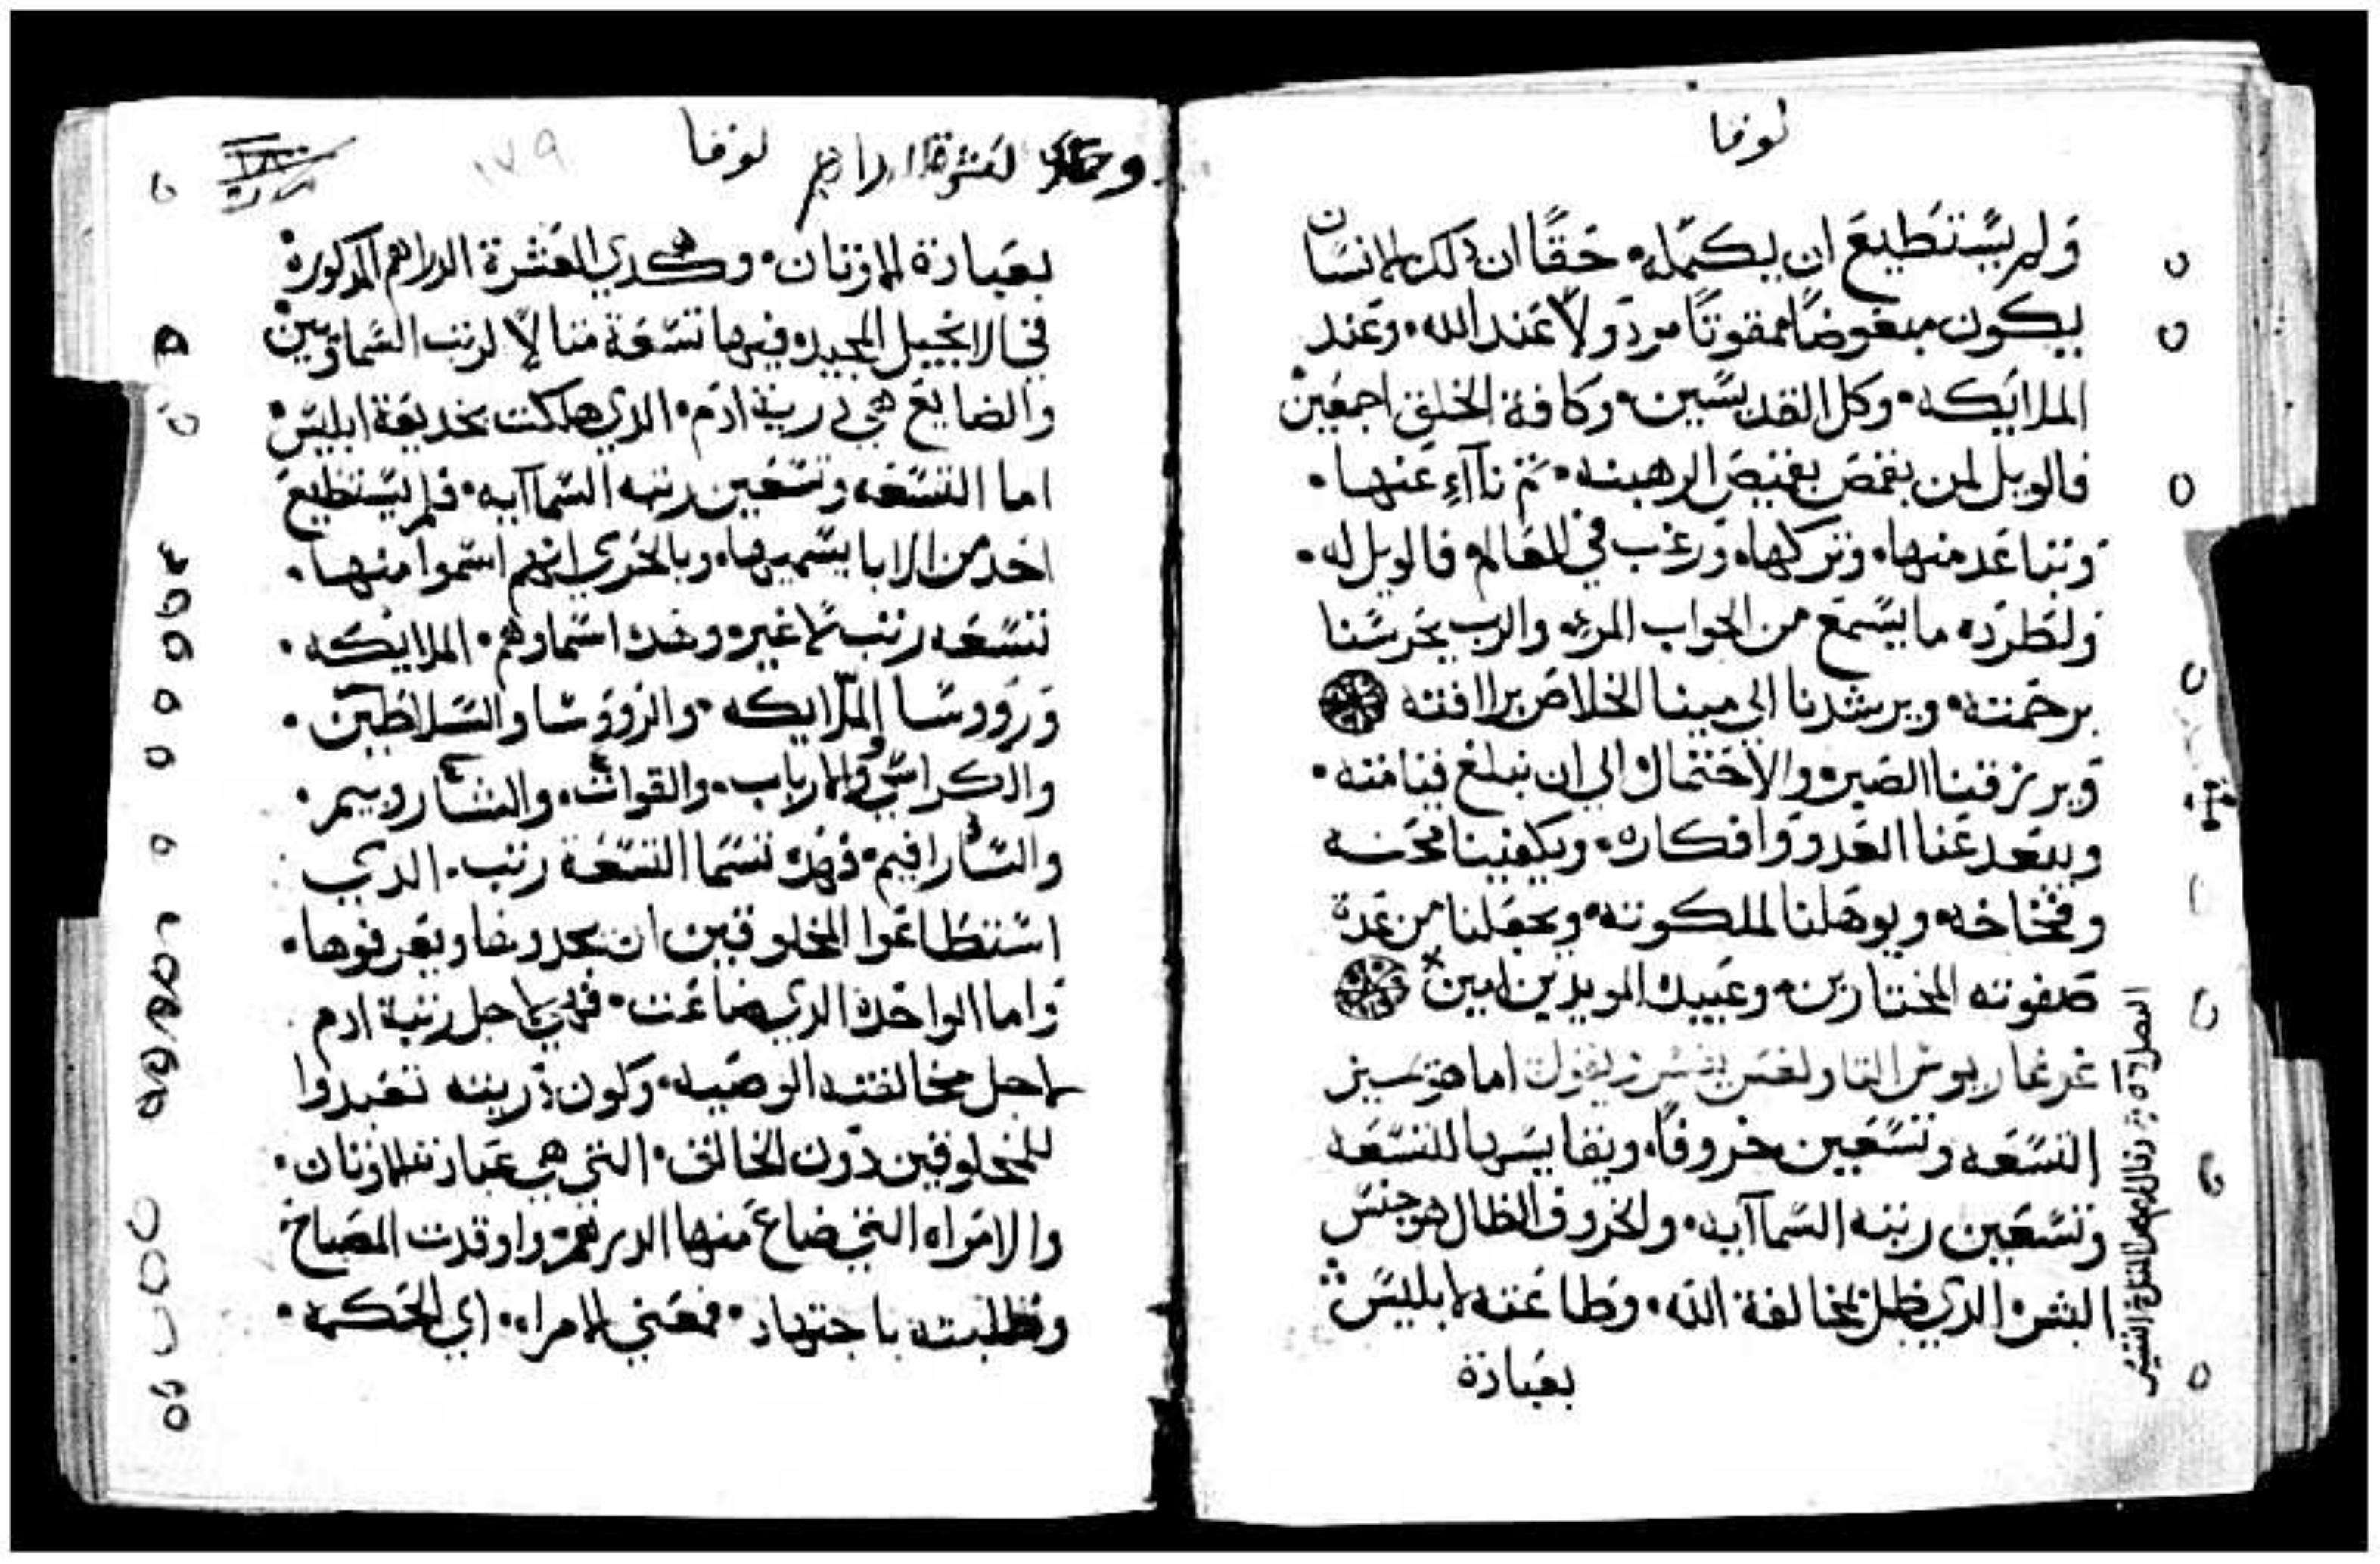 لوقا
ولم يستطيع ان يكمله، حقًا ان ذلك الانسان
يكون مبغوضًا ممقوتًا مردولا عند الله، وعند
الملايكه، وكل القديسين، وكافة الخلق اجمعين
فالويل لمن يقمص بقميص الرهبنه، تم ناآء عنها،
وتباعد منها، وتركها، ورغب في العالم فالويل له،
ولطرده ما يسمع من الجواب المرء، والرب يحرسنا
برحمته، ويرشدنا الى مينا الخلاص برافته
ويرزقنا الصبر، والاحتمال الي ان نبلغ قيامته،
ويبعد عنا العدو وافكاره، ويكفينا محنه
وفخاخه، ويوهلنا لملكوته، ويجعلنا من عدة
صفوته المختارين، وعبيده المويدين امين
غرغاريوس التاولغس يفسر ويقول اما هو سير
التسعه وتسعين خروفًا، ويقايسها للتسعه
وتسعين رتبه السماآيه، والخروف الظال هو جنس
البشر، الدي ظل بمخالفة الله، وطاعته لابليس
بعبادة
لوقا
العشرة الدراهم
١٧٩
بعبادة الاوتان، وكدي العشرة الدراهم المدكورة
في الانجيل المجيد، فيها تسعة مثالا لرتب السماويين
والضايع هي درية ادم، الدي هلكت بخديعة ابليس
اما التسعه وتسعين رتبه السماآيه، فلم يستطيع
احد من الابا يسميها، وبالحري انهم اسموا منها،
تسعه رتب لا غير، وهده اسماوهم، الملايكه،
وروسا الملايكه، والرووسا والسلاطين،
والكراسي والارباب، والقوات، والشاروبيم،
والسارافيم، فهده تسما التسعة رتب، الدي
استطاعوا المخلوقين ان يحدوها ويعرفوها،
واما الواحده الدي ضاعت، فهي لاجل رتبة ادم
لاجل مخالفته الوصيه، وكون دريته تعبدوا
للمخلوقين دون الخالق، التي هي عبادة الاوتان،
والامراه التي ضاع منها الدرهم، واوقدت المصباح
وطلبته باجتهاد، فمعني الامراه، اي الحكمه،